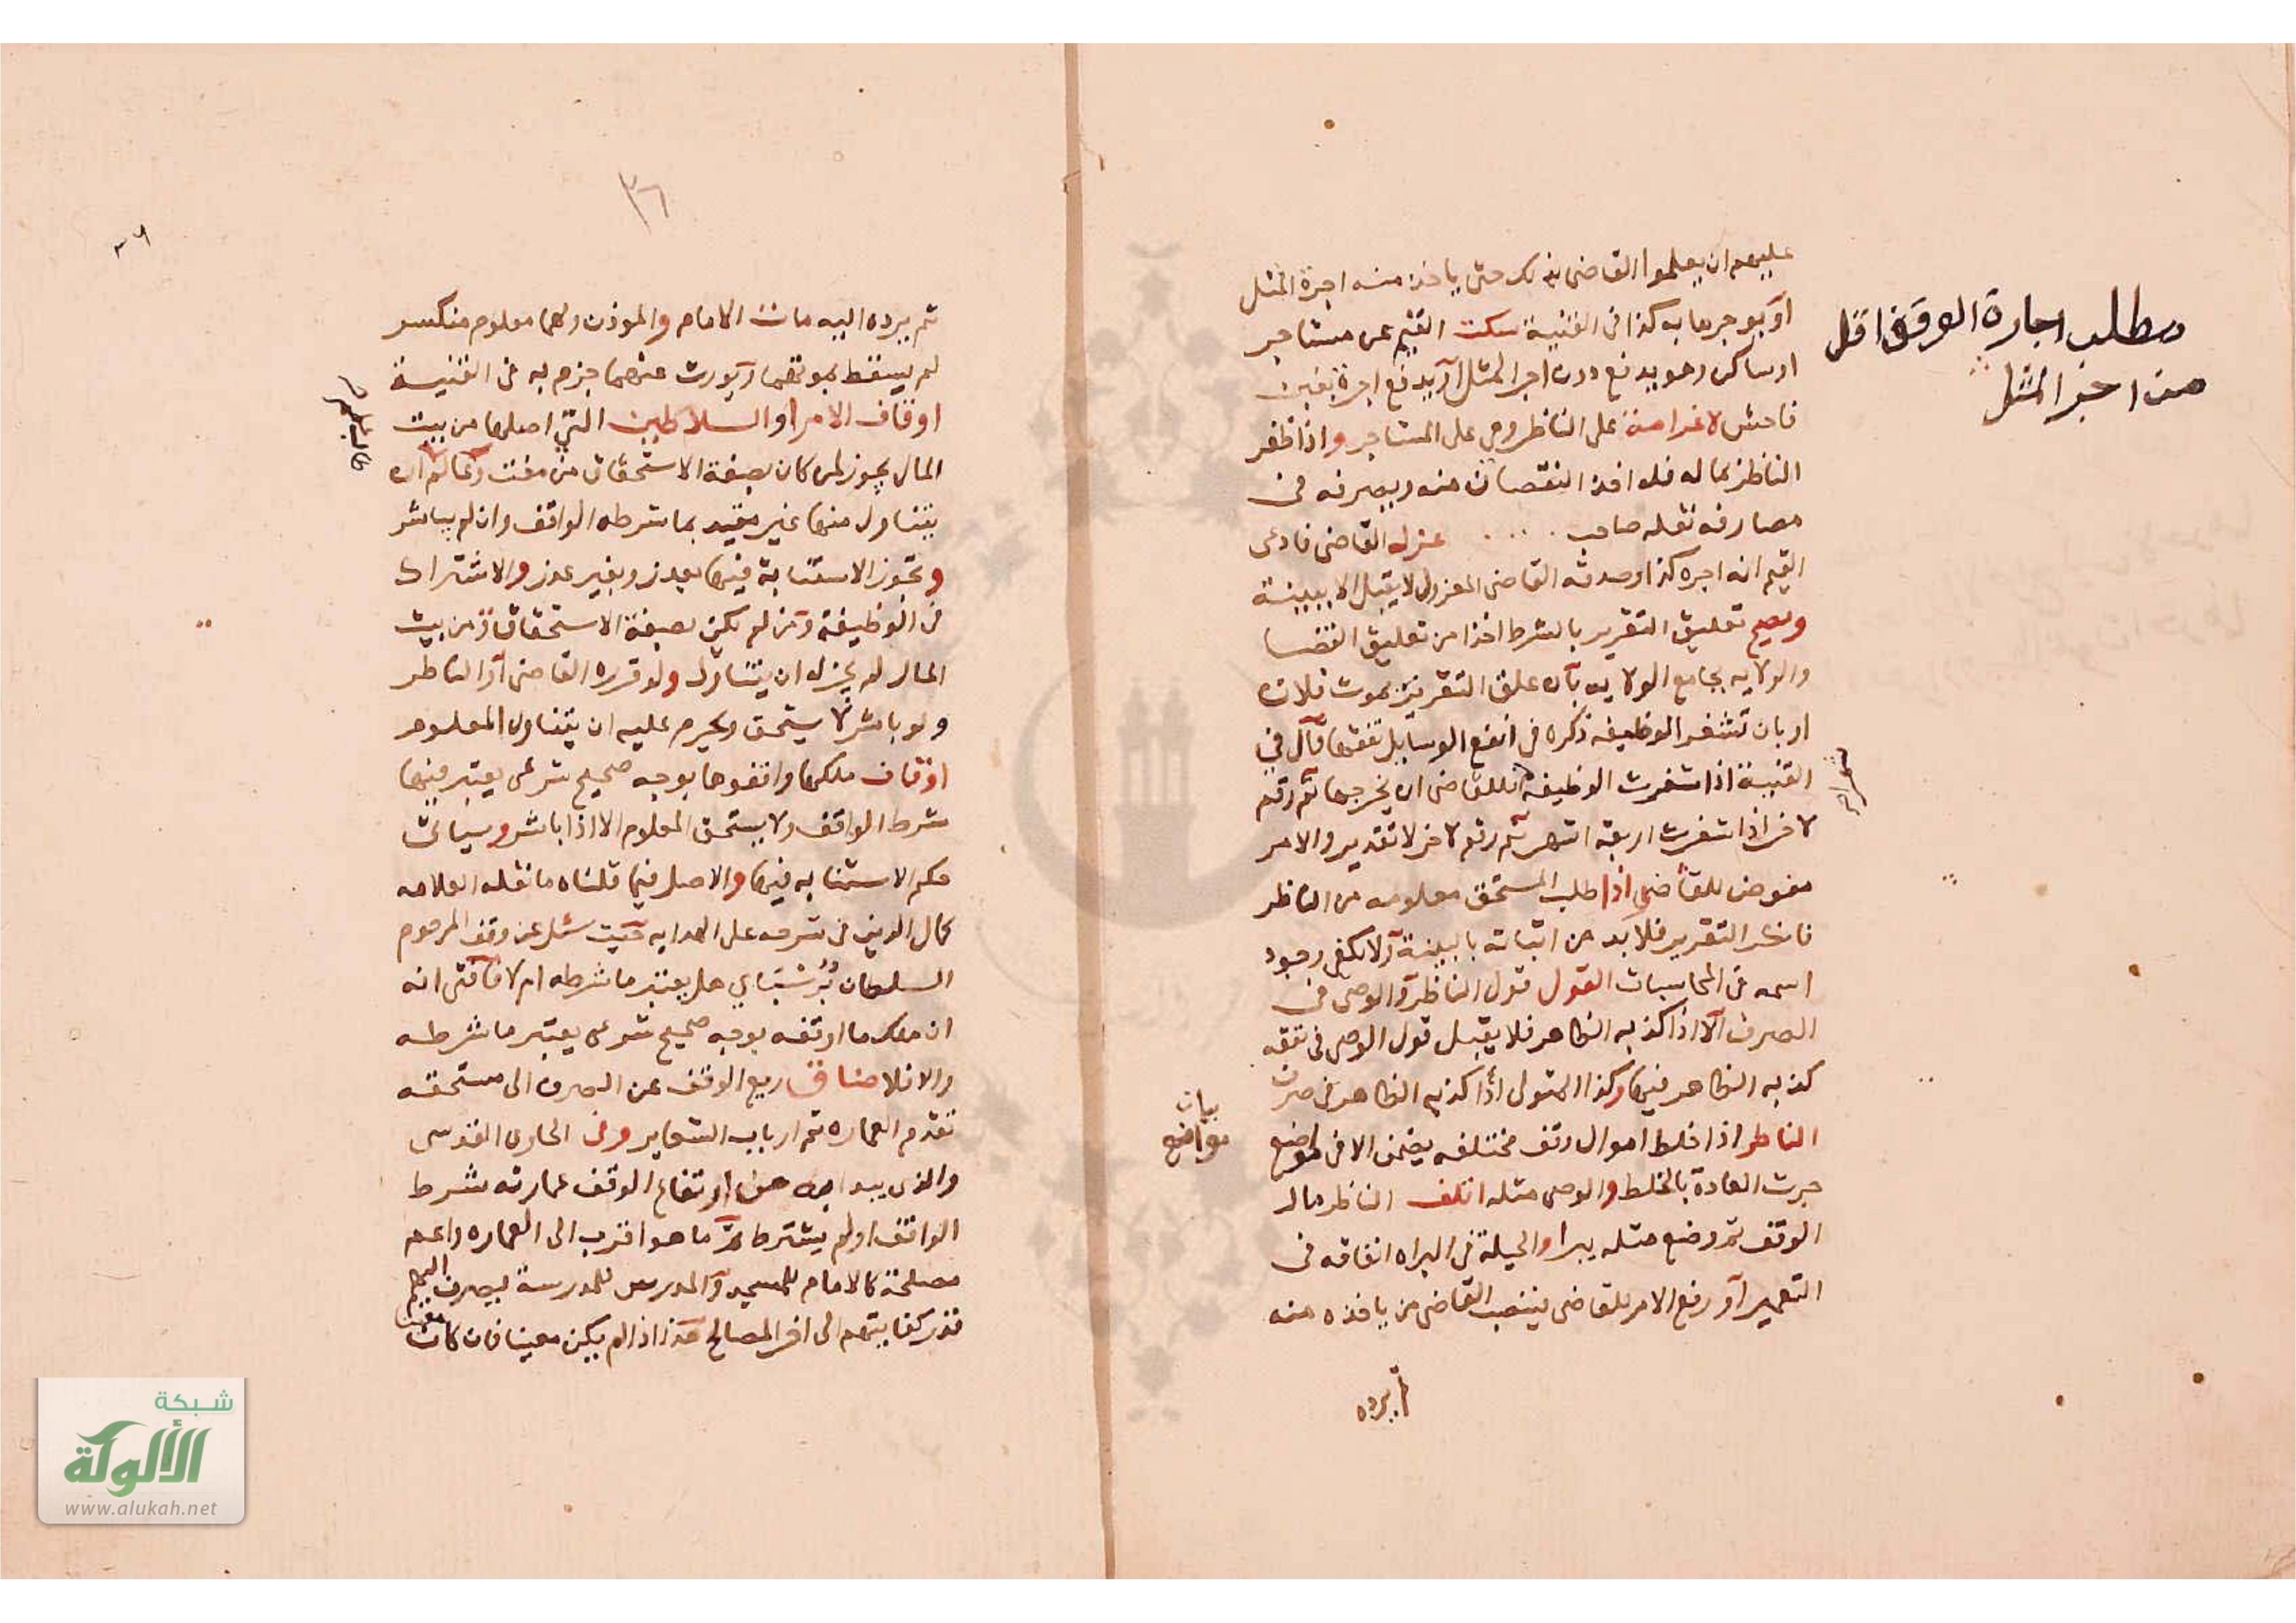 عليهم ان يعلموا القاضي بذلك حتى ياخذ منه اجرة المثل
او يوجرها به كذا في القنية سكت القيم عن مستاجر
او ساكن وهو يدفع دون اجر المثل او يدفع اجرة بغبن
فاحش لا غرامة على الناظر وهي على المستاجر واذا ظفر
الناظر بماله فله اخذ النقصان منه ويصرفه في
مصارفه نقله صاحب .... عزله القاضي فادعى
القيم انه اجره كذا وصدقه القاضي المعزول لا يقبل الا ببينة
ويصح تعليق التقرير بالشرط اخذا من تعليق القضا
والولايه بجامع الولايه بان علق التقرير بموت فلان
او بان تشغر الوظيفه ذكره في انفع الوسايل تفقها قال في
القنية اذا شغرت الوظيفه فللقاضي ان يخرجها ثم رقم
لاخر اذا شغرت اربعة اشهر ثم رقم لاخر لا تقدير والامر
مفوض للقاضي اذا طلب المستحق معلومه من الناظر
فانكر التقرير فلا بد من اثباته بالبينة ولا يكفي وجود
اسمه في المحاسبات القول قول الناظر والوصي في
الصرف الا اذا كذبه الظاهر فلا يقبل قول الوصي في نفقه
كذبه الظاهر فيها وكذا المتولى اذا كذبه الظاهر في صرف
الناظر اذا خلط اموال وقف مختلفه يضمن الا في مواضع
جرت العادة بالخلط والوصي مثله اتلف الناظر مال
الوقف ثم وضع مثله يبرا والحيلة في البراه انفاقه في
التعمير او رفع الامر للقاضي ينصب القاضي من ياخذه منه
ثم يرده
مطلب اجارة الوقف اقل
من اجر المثل
بيان
مواضع
٣٦
٣٦
ثم يرده اليه مات الامام والموذن ولهما معلوم منكسر
لم يسقط بموتهما ويورث عنهما جزم به في القنية
اوقاف الامرا والسلاطين التي اصلها من بيت
المال يجوز لمن كان بصفة الاستحقاق من مفت وعالم ان
يتناول منها غير مقيد بما شرطه الواقف وان لم يباشر
وتجوز الاستنابة فيها بعذر وبغير عذر والاشتراك
في الوظيفة ومن لم يكن بصفة الاستحقاق من بيت
المال لم يجز له ان يتناول ولو قرره القاضي او الناظر
ولو باشر لا يستحق ويحرم عليه ان يتناول المعلوم
اوقاف ملكها واقفوها بوجه صحيح شرعي يعتبر فيها
شرط الواقف ولا يستحق المعلوم الا اذا باشر وسياتي
حكم الاستنابه فيها والاصل فيما قلناه ما نقله العلامه
كمال الدين في شرحه على الهدايه حيث سئل عن وقف المرحوم
السلطان برسباي هل يعتبر ما شرطه ام لا فافتى انه
ان ملك ما اوقفه بوجه صحيح شرعي يعتبر ما شرطه
والا فلا ضاق ريع الوقف عن الصرف الى مستحقه
تقدم العماره ثم ارباب الشعاير وفي الحاوى القدسي
والذى يبدا به من ارتفاع الوقف عمارته شرط
الواقف او لم يشترط ثم ما هو اقرب الى العماره واعم
مصلحة كالامام للمسجد والمدرس للمدرسة يصرف اليهم
قدر كفايتهم الى اخر المصالح هذا اذا لم يكن معينا فان كان معينا
شبكة
الألوكة
www.alukah.net